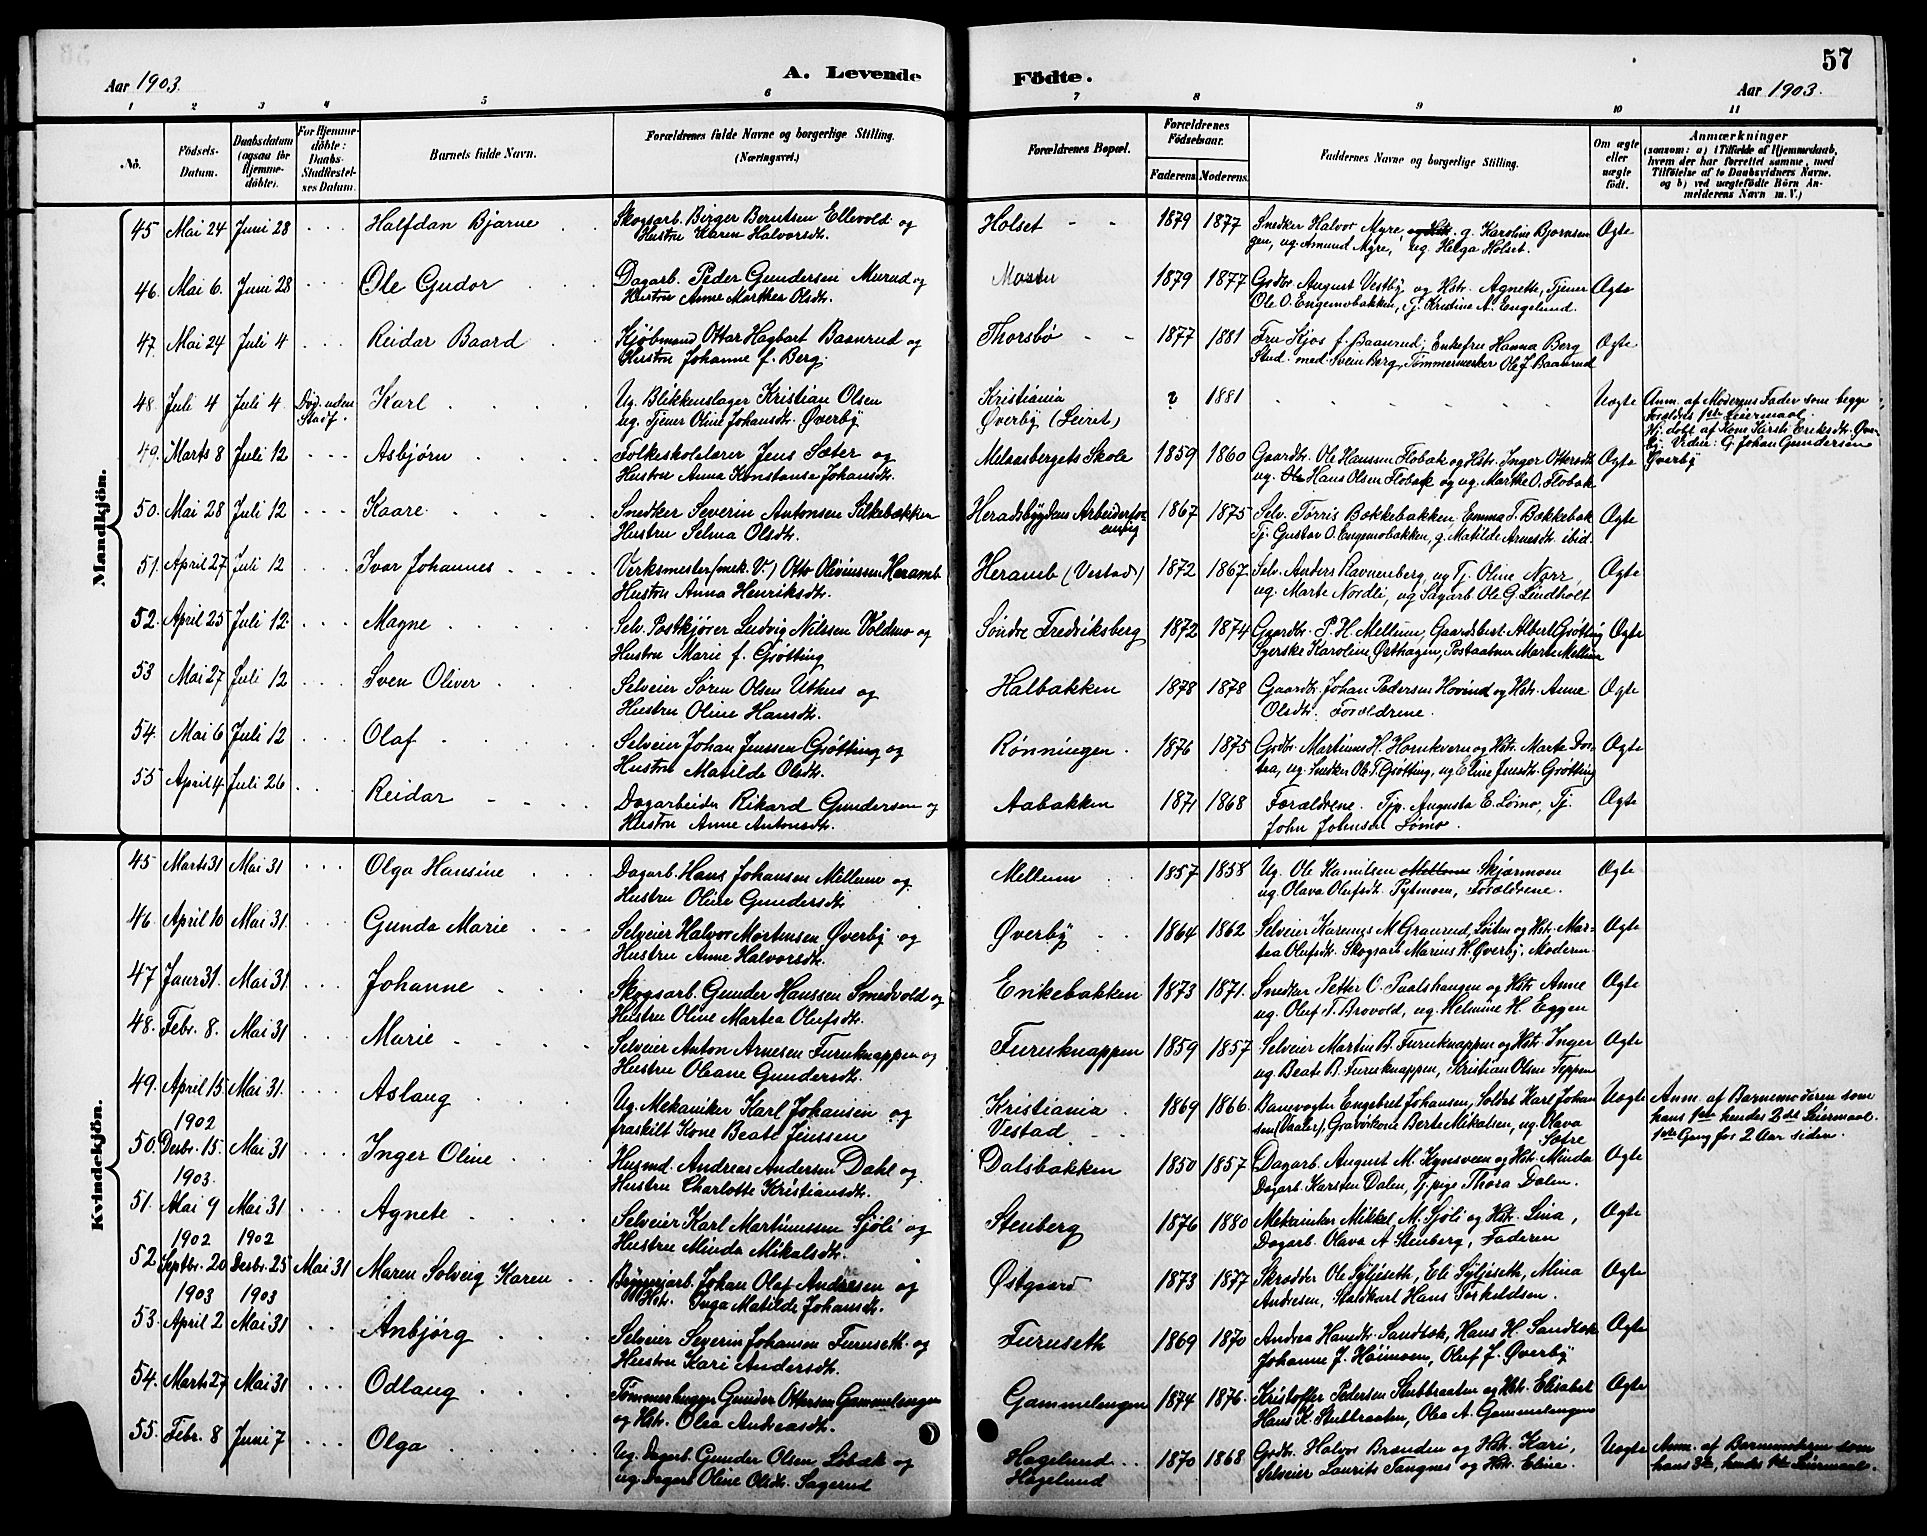 57
Aar 1903.
A. Levende
Födte.
Aar 1903.
1 2 3 4 5 6 7 8 9 10 11
No.
Födsels-Datum.
Daabsdatum (ogsaa for Hjemmedöbte).
For Hjemmedöbte: Daabs-Stadfæstelses Datum.
Barnets fulde Navn.
Forældrenes fulde Navne og borgerlige Stilling. (Næringsvei.)
Forældrenes Bopæl.
Forældrenes Födselsaar.
Faderens Moderens
Faddernes Navne og borgerlige Stilling.
Om ægte eller uægte født.
Anmærkninger (saasom: a) i Tilfælde af Hjemmedaab, hvem der har forrettet samme, med Tilföielse af to Daabsvidners Navne, og b) ved uægtefödte Börn Anmelderens Navn m. V.)
Mandkjön.
45 Mai 24 Juni 28 Halfdan Bjarne Skogsarb. Birger Berntsen Ellevold og Holset 1879 1877 Snedker Halvor Myre, g. Karoline Bjørnsen Ægte
Hustru Karen Halvorsdt. ug. Amund Myre, ug. Helga Holset.
46. Mai 6. Juni 28 Ole Gudor Dagarb. Peder Gundersen Murud og 1879 1877 Gsdbr. August Vestby og Hstr. Agnette, Tjener Ægte
Hustru Anne Marthea Olsdt. Ole O. Engemobakken, Tj. Kristine A. Engelund.
47. Mai 24 Juli 4 Reidar Baard Kjøbmand Ottar Hagbart Baarrud og Thorsbø 1877 1881 Fru Kjos f. Baarrud, Enkefru Hanna Berg Ægte
Hustru Johanne f. Berg. Stud. med. Svein Berg, Tømmermerker Ole J. Baarrud
48. Juli 4 Juli 4 Død uden Stadf. Karl Ug. Blikkenslager Kristian Olsen Kristiania ? 1881 Uægte Anm. af Moderens Fader som begge
ug. Tjener Oline Johansdt. Øverby Øverby Forældres 1ste Leiermaal.
Hj. døbt af Kone Kirsti Eriksdt. Øverby. Vidne: G. Johan Gundersen Øverby
49. Marts 8 Juli 12 Asbjørn Folkeskolelærer Jens Sæter og Melaasbergets Skole 1859 1860 Gaardbr. Ole Hanssen Flobak og Hstr. Inger Ottersdt. Ægte
Hustru Anna Konstanse Johansdt. ug. Hans Olsen Flobak og ug. Marthe O. Flobak
50. Mai 28 Juli 12 Kaare Snedker Severin Antonsen Silkebækken Heradsbygdens Arbeiderforening 1867 1875 Selv. Torris Bækkebakken, Emma T. Bækkebak Ægte
Hustru Selma Olsdt. Tj. Gustav O. Engemobakken, g. Matilde Arnesdt. ibid.
51. April 27 Juli 12 Ivar Johannes Verksmester (mek. V.) Otto Oliviussen Heramb Heramb (Vestad) 1872 1867 Selv. Anders Ravneberg, ug Tj. Oline Narr, Ægte
Hustru Anna Henriksdt. ug. Marte Nordli, ug Sagarb. Ole G. Lindholt
52. April 25 Juli 12 Magne Selv. Postkjører Ludvig Nilssen Voldmo og Søndre Fredriksberg 1872 1874 Gaardbr. P. H. Mellum, Gaardsbest. Albert Grøtting Ægte
Hustru Marie f. Grøtting Syerske Karoline Østhagen, Marte Mellum
53 Mai 27 Juli 12 Sven Oliver Selveier Søren Olsen Uthus og Halbakken 1878 1878 Gaardbr. Johan Pedersen Hovind og Hstr. Anne Ægte
Hustru Oline Hansdt. Olsdt. Forældrene.
54. Mai 6 Juli 12 Olaf Selveier Johan Jenssen Grøtting og Rønningen 1876 1875 Gsdbr. Martinus H. Hornkvern og Hstr. Marte Ægte
Hustru Matilde Olsdt. ug. Snedker Ole T. Grøtting, ug Eline Jensdt. Grøtting
55 April 4 Juli 26 Reidar Dagarbeider Rikard Gundersen og Aabakken 1871 1868 Forældrene. Tjp. Augusta E. Lømo, Tj. Ægte
Hustru Anne Antonsdt. John Johnsen Lømo.
Kvindekjön.
45 Marts 31 Mai 31 Olga Hansine Dagarb. Hans Johansen Mellum og Mellum 1857 1858 Ug. Ole Kamilsen Mellum Skjærmoen Ægte
Hustru Oline Gundersdt. ug. Olava Olufsdt. Pytmoen, Forældrene.
46. April 10 Mai 31. Gunda Marie Selveier Halvor Mortensen Øverby og Øverby 1864 1862 Selveier Karenus M. Granrud, Løiten og Hstr. Mar- Ægte
Hustru Anne Halvorsdt. tea Olufsdt. Skogsarb. Marius H. Øverby, Moderen
47 Janr 31. Mai 31. Johanne Skogsarb. Gunder Hanssen Smedvold og Enkebakken 1873 1871. Snedker Petter O. Paalshaugen og Hstr. Anne Ægte
Hustru Oline Martea Olufsdt. ug. Oluf T. Brovold, ug. Helmine H. Eggen
48. Febr. 8. Mai 31 Marie Selveier Anton Arnesen Furuknappen og Furuknappen 1859 1857 Selveier Martin B. Furuknappen og Hstr. Inger Ægte
Hustru Oleane Gundersdt. ug. Beate B. Furuknappen, Kristian Olsen Teppen
49. April 15 Mai 31. Aslaug Ug. Mekaniker Karl Johansen og Kristiania 1869 1866. Banevogter Engebret Johansen, Soldat Karl Johan Uægte Anm. af Barnemoderen som
fraskilt Kone Beate Jenssen Vestad sen (Vaaler), Berte Mikalsen, ug. Olava Sætre hans 1ste hendes 2det Leiermaal.
1ste Gang for 2 Aar siden.
1902
50. Decbr. 15. Mai 31 Inger Oline Husmd. Andreas Andersen Dahl og Dalsbakken 1850 1857 Dagarb. August M. Kynsveen og Hstr. Minda Ægte
Hustru Charlotte Kristiansdt. Dagarb. Karsten Dalen, Tj.pige Thora Dalen.
1903.
51. Mai 9 Mai 31 Agnete Selveier Karl Martinussen Sjøli og Stenberg 1876 1880 Mekaniker Mikkel M. Sjøli og Hstr. Lina, Ægte
Hustru Minda Mikalsdt. Dagarb. Olava A. Stenberg, Faderen
1902 1902
52 Septbr. 20 Decbr. 25 Mai 31 Maren Solveig Karen Johan Olaf Andresen og Østgaard 1873 1877 Skrædder Ole Syljeseth, Eli Syljeseth, Mina Ægte
Hstr. Inga Matilde Johansdt. Andresen, Staldkarl Hans Torkildsen.
1903 1903
53. April 2 Mai 31 Anbjørg Selveier Severin Johansen Furuseth og Furuseth 1869 1870 Andrea Hansdt. Sandbæk, Hans H. Sandbæk Ægte
Hustru Kari Andersdt. Johanne J. Høimoen, Oluf J. Øverby
54. Marts 27 Mai 31 Odlaug Tømmerhugger Gunder Ottersen Gammelengen Gammelengen 1874 1876. Kristoffer Pedersen Stubbraaten og Hstr. Elisabet Ægte
og Hstr. Olea Andreasdt. Hans K. Stubbraaten, Olea A. Gammelengen
55. Febr. 8 Juni 7 Olga Ug. Dagarb. Gunder Olsen Løbæk og Hagelund 1870 1868 Gsdbr. Halvor Brænden og Hstr. Kari, Uægte Anm. af Barnemoderen som
ug. Oline Olsdt. Sagerud Hagelund Selveier Laurits Tangnes og Hstr. Eline. hans 3die, hendes 1ste Leiermaal.